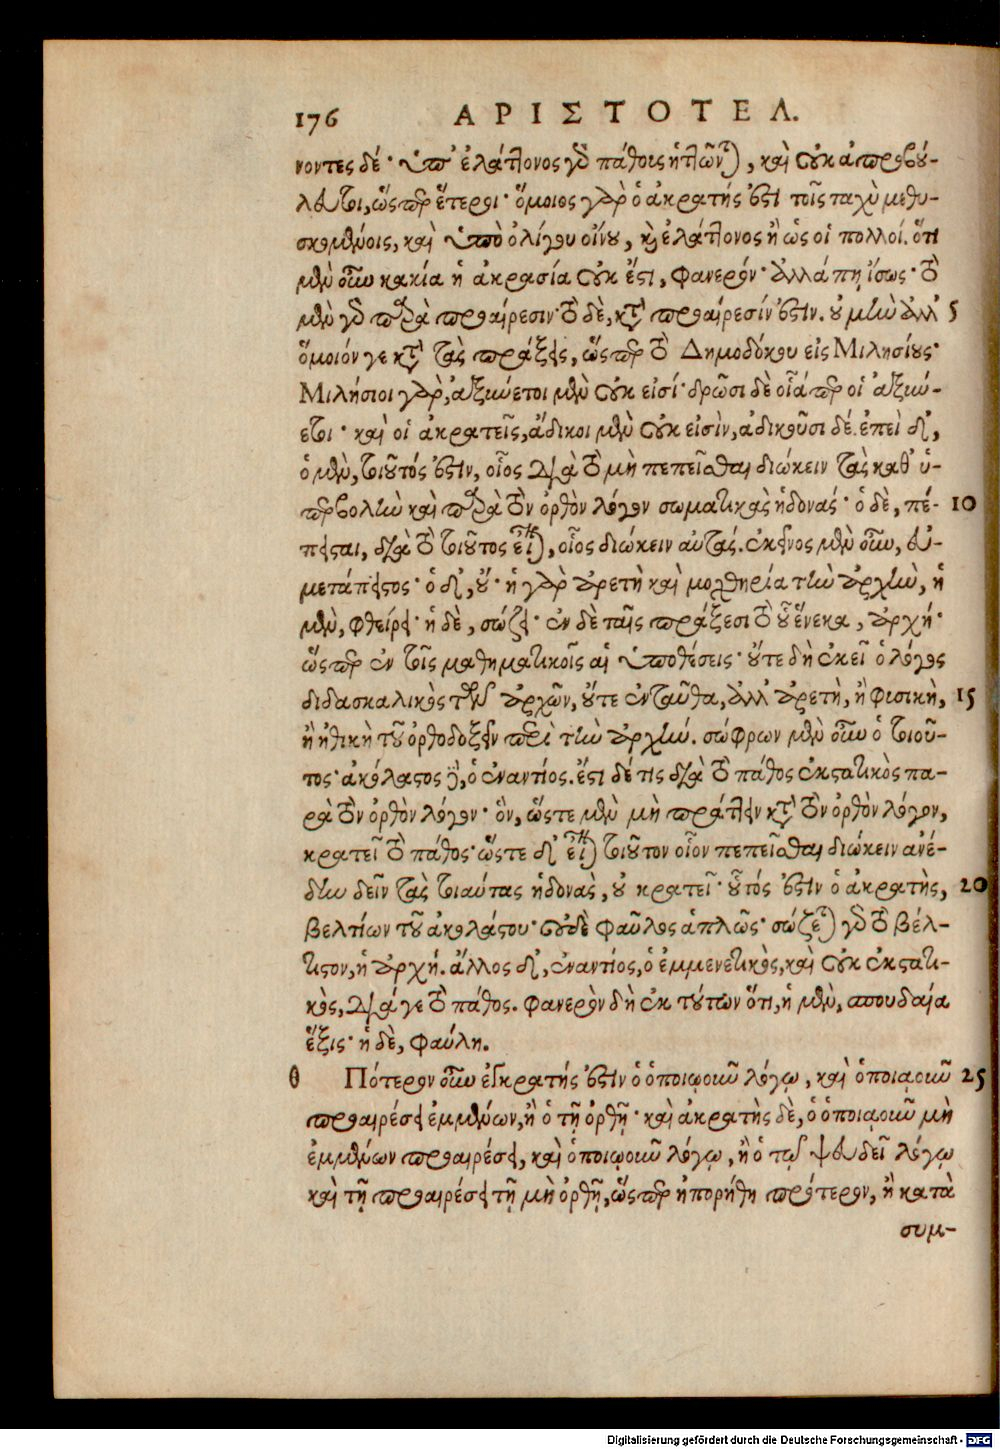 176 ΑΡΙΣΤΟΤΕΛ.
νοντες δέ· ὑπ' ἐλάττονος γὸ πάθους ἡττῶνται, καὶ οὐκ ἀπροβού-
λευτοι, ὥσπερ ἕτεροι· ὅμοιος γὰρ ὁ ἀκρατής ἐστι τοῖς ταχὺ μεθυ-
σκομένοις, καὶ ὑπὸ ὀλίγου οἴνου, καὶ ἐλάττονος ἢ ὡς οἱ πολλοί. ὅτι
μὲν οὖν κακία ἡ ἀκρασία οὐκ ἔστι, φανερόν· ἀλλά πη ἴσως· τὸ
μὲν γὸ παρὰ προαίρεσιν· τὸ δὲ, κατὰ προαίρεσίν ἐστιν. οὐ μὴν ἀλλ' 5
ὅμοιόν γε κατὰ τὰς πράξεις, ὥσπερ τὸ Δημοδόκου εἰς Μιλησίους·
Μιλήσιοι γὰρ, ἀξιώετοι μὲν οὐκ εἰσί· δρῶσι δὲ οἷά περ οἱ ἀξιώ-
ετοι· καὶ οἱ ἀκρατεῖς, ἄδικοι μὲν οὐκ εἰσὶν, ἀδικοῦσι δέ. ἐπεὶ δ',
ὁ μὲν, τοιοῦτός ἐστιν, οἷος διὰ τὸ μὴ πεπεῖσθαι διώκειν τὰς καθ' ὑ-
περβολὴν καὶ παρὰ τὸν ὀρθὸν λόγον σωματικὰς ἡδονάς· ὁ δὲ, πέ- 10
πεισται, διὰ τὸ τοιοῦτος εἶναι, οἷος διώκειν αὐτάς. ἐκεῖνος μὲν οὖν, εὐ-
μετάπειστος· ὁ δ', οὔ· ἡ γὰρ ἀρετὴ καὶ μοχθηρία τὴν ἀρχὴν, ἡ
μὲν, φθείρει· ἡ δὲ, σώζει· ἐν δὲ ταῖς πράξεσι τὸ οὗ ἕνεκα, ἀρχή·
ὥσπερ ἐν τοῖς μαθηματικοῖς αἱ ὑποθέσεις· οὔτε δὴ ἐκεῖ ὁ λόγος
διδασκαλικὸς τῶν ἀρχῶν, οὔτε ἐνταῦθα, ἀλλ' ἀρετὴ, ἢ φισικὴ, 15
ἢ ἠθικὴ τοῦ ὀρθοδοξεῖν περὶ τὴν ἀρχήν. σώφρων μὲν οὖν ὁ τοιοῦ-
τος· ἀκόλαστος δὲ, ὁ ἐναντίος. ἔστι δέ τις διὰ τὸ πάθος ἐκστατικὸς πα-
ρὰ τὸν ὀρθὸν λόγον· ὃν, ὥστε μὲν μὴ πράττειν κατὰ τὸν ὀρθὸν λόγον,
κρατεῖ τὸ πάθος· ὥστε δ' εἶναι τοιοῦτον οἷον πεπεῖσθαι διώκειν ἀνέ-
δην δεῖν τὰς τοιαύτας ἡδονὰς, οὐ κρατεῖ· οὗτός ἐστιν ὁ ἀκρατὴς, 20
βελτίων τοῦ ἀκολάστου· οὐδὲ φαῦλος ἁπλῶς· σώζεται γὸ τὸ βέλ-
τιστον, ἡ ἀρχή. ἄλλος δ', ἐναντίος, ὁ ἐμμενετικὸς, καὶ οὐκ ἐκστατι-
κὸς, διά γε τὸ πάθος. φανερὸν δὴ ἐκ τούτων ὅτι, ἡ μὲν, σπουδαία
ἕξις· ἡ δὲ, φαύλη.
θ Πότερον οὖν ἐγκρατής ἐστιν ὁ ὁποιῳοιοῦν λόγῳ, καὶ ὁποιᾳοιοῦν 25
προαιρέσει ἐμμένων, ἢ ὁ τῇ ὀρθῇ· καὶ ἀκρατὴς δὲ, ὁ ὁποιᾳοιοῦν μὴ
ἐμμένων προαιρέσει, καὶ ὁποιῳοιοῦν λόγῳ, ἢ ὁ τῷ ψευδεῖ λόγῳ
καὶ τῇ προαιρέσει τῇ μὴ ὀρθῇ, ὥσπερ ἠπορήθη πρότερον, ἢ κατὰ
συμ-
Digitalisierung gefördert durch die Deutsche Forschungsgemeinschaft - DFG